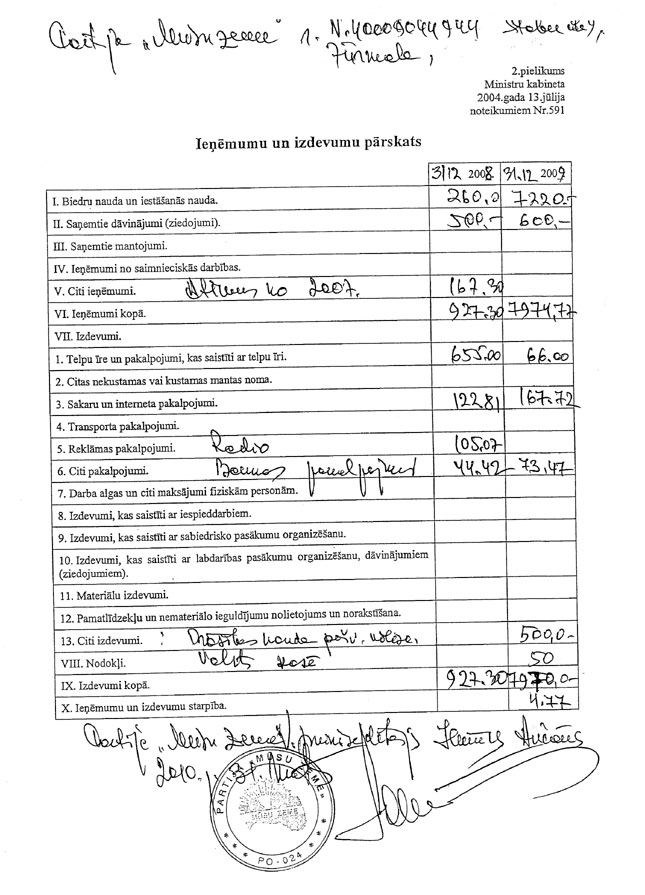 Partija „Mūsu zeme" N.40009044944
2.pielikums
Ministru kabineta
2004.gada 13.jūlija
noteikumiem Nr.591
Ieņēmumu un izdevumu pārskats
31.12 2008 31.12.2009
I. Biedru nauda un iestāšanās nauda. 260,0 7220.-
II. Saņemtie dāvinājumi (ziedojumi). 500,- 600,-
III. Saņemtie mantojumi.
IV. Ieņēmumi no saimnieciskās darbības.
V. Citi ieņēmumi. no 2007. 167.30
VI. Ieņēmumi kopā. 927.30 7974,77
VII. Izdevumi.
1. Telpu īre un pakalpojumi, kas saistīti ar telpu īri. 655.00 66.00
2. Citas nekustamas vai kustamas mantas noma.
3. Sakaru un interneta pakalpojumi. 122.81 167.72
4. Transporta pakalpojumi.
5. Reklāmas pakalpojumi. Radio 105.07
6. Citi pakalpojumi. 44.42 73,47
7. Darba algas un citi maksājumi fiziskām personām.
8. Izdevumi, kas saistīti ar iespieddarbiem.
9. Izdevumi, kas saistīti ar sabiedrisko pasākumu organizēšanu.
10. Izdevumi, kas saistīti ar labdarības pasākumu organizēšanu, dāvinājumiem
(ziedojumiem).
11. Materiālu izdevumi.
12. Pamatlīdzekļu un nemateriālo ieguldījumu nolietojums un norakstīšana.
13. Citi izdevumi. nauda 500,0-
VIII. Nodokļi. Valsts kasē 50
IX. Izdevumi kopā. 927.30 7970,0-
X. Ieņēmumu un izdevumu starpība. 4.77
Partija „Mūsu zeme"
2010.
PARTIJA «MŪSU ZEME»
MŪSU ZEME
PO-024